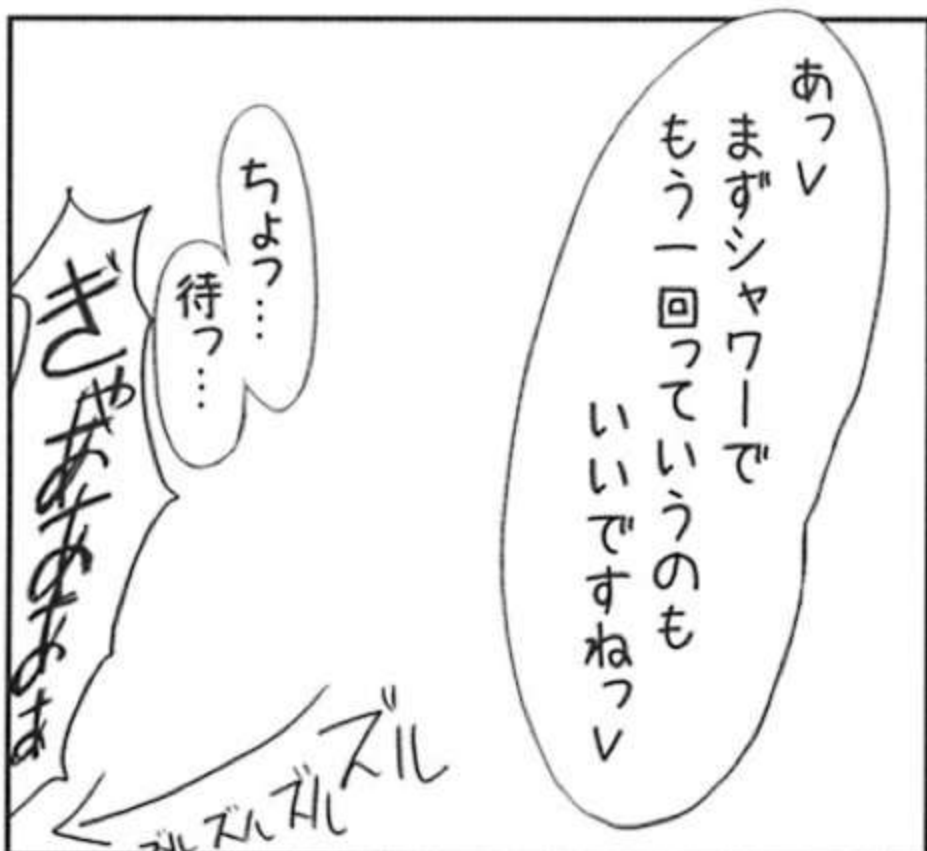 あっ
まずシャワーで
もう一回っていうのも
いいですねっ
ちょっ…
待っ…
ぎゃあああぁ
ズル
ズル
ズル
ズル